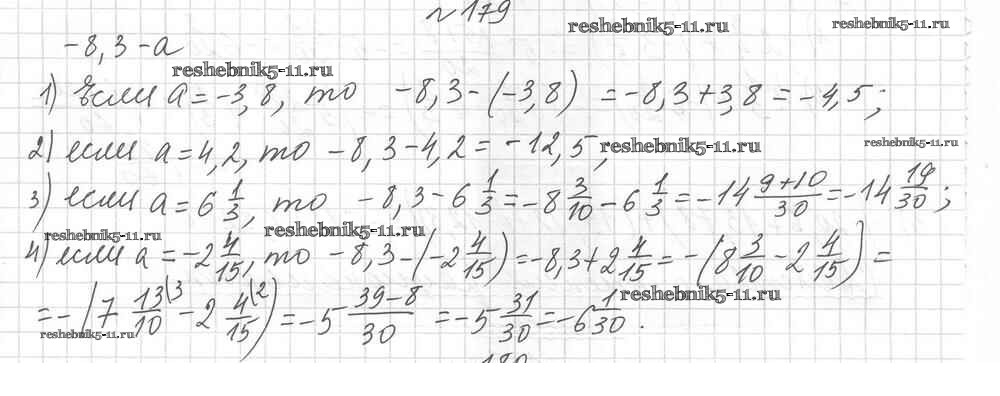 №179
reshebnik5-11.ru
reshebnik5-11.ru
-8,3-a
reshebnik5-11.ru
1) Если a = -3,8, то -8,3-(-3,8) = -8,3+3,8 = -4,5;
2) если a = 4,2, то -8,3-4,2 = -12,5;
reshebnik5-11.ru
reshebnik5-11.ru
3) если a = 6 1/3, то -8,3 - 6 1/3 = -8 3/10 - 6 1/3 = -14 (9+10)/30 = -14 19/30;
reshebnik5-11.ru
reshebnik5-11.ru
4) если a = -2 4/15, то -8,3-(-2 4/15) = -8,3+2 4/15 = -(8 3/10 - 2 4/15) =
= -(7 13/10 \3 - 2 4/15 \2) = -5 (39-8)/30 = -5 31/30 = -6 1/30.
reshebnik5-11.ru
reshebnik5-11.ru